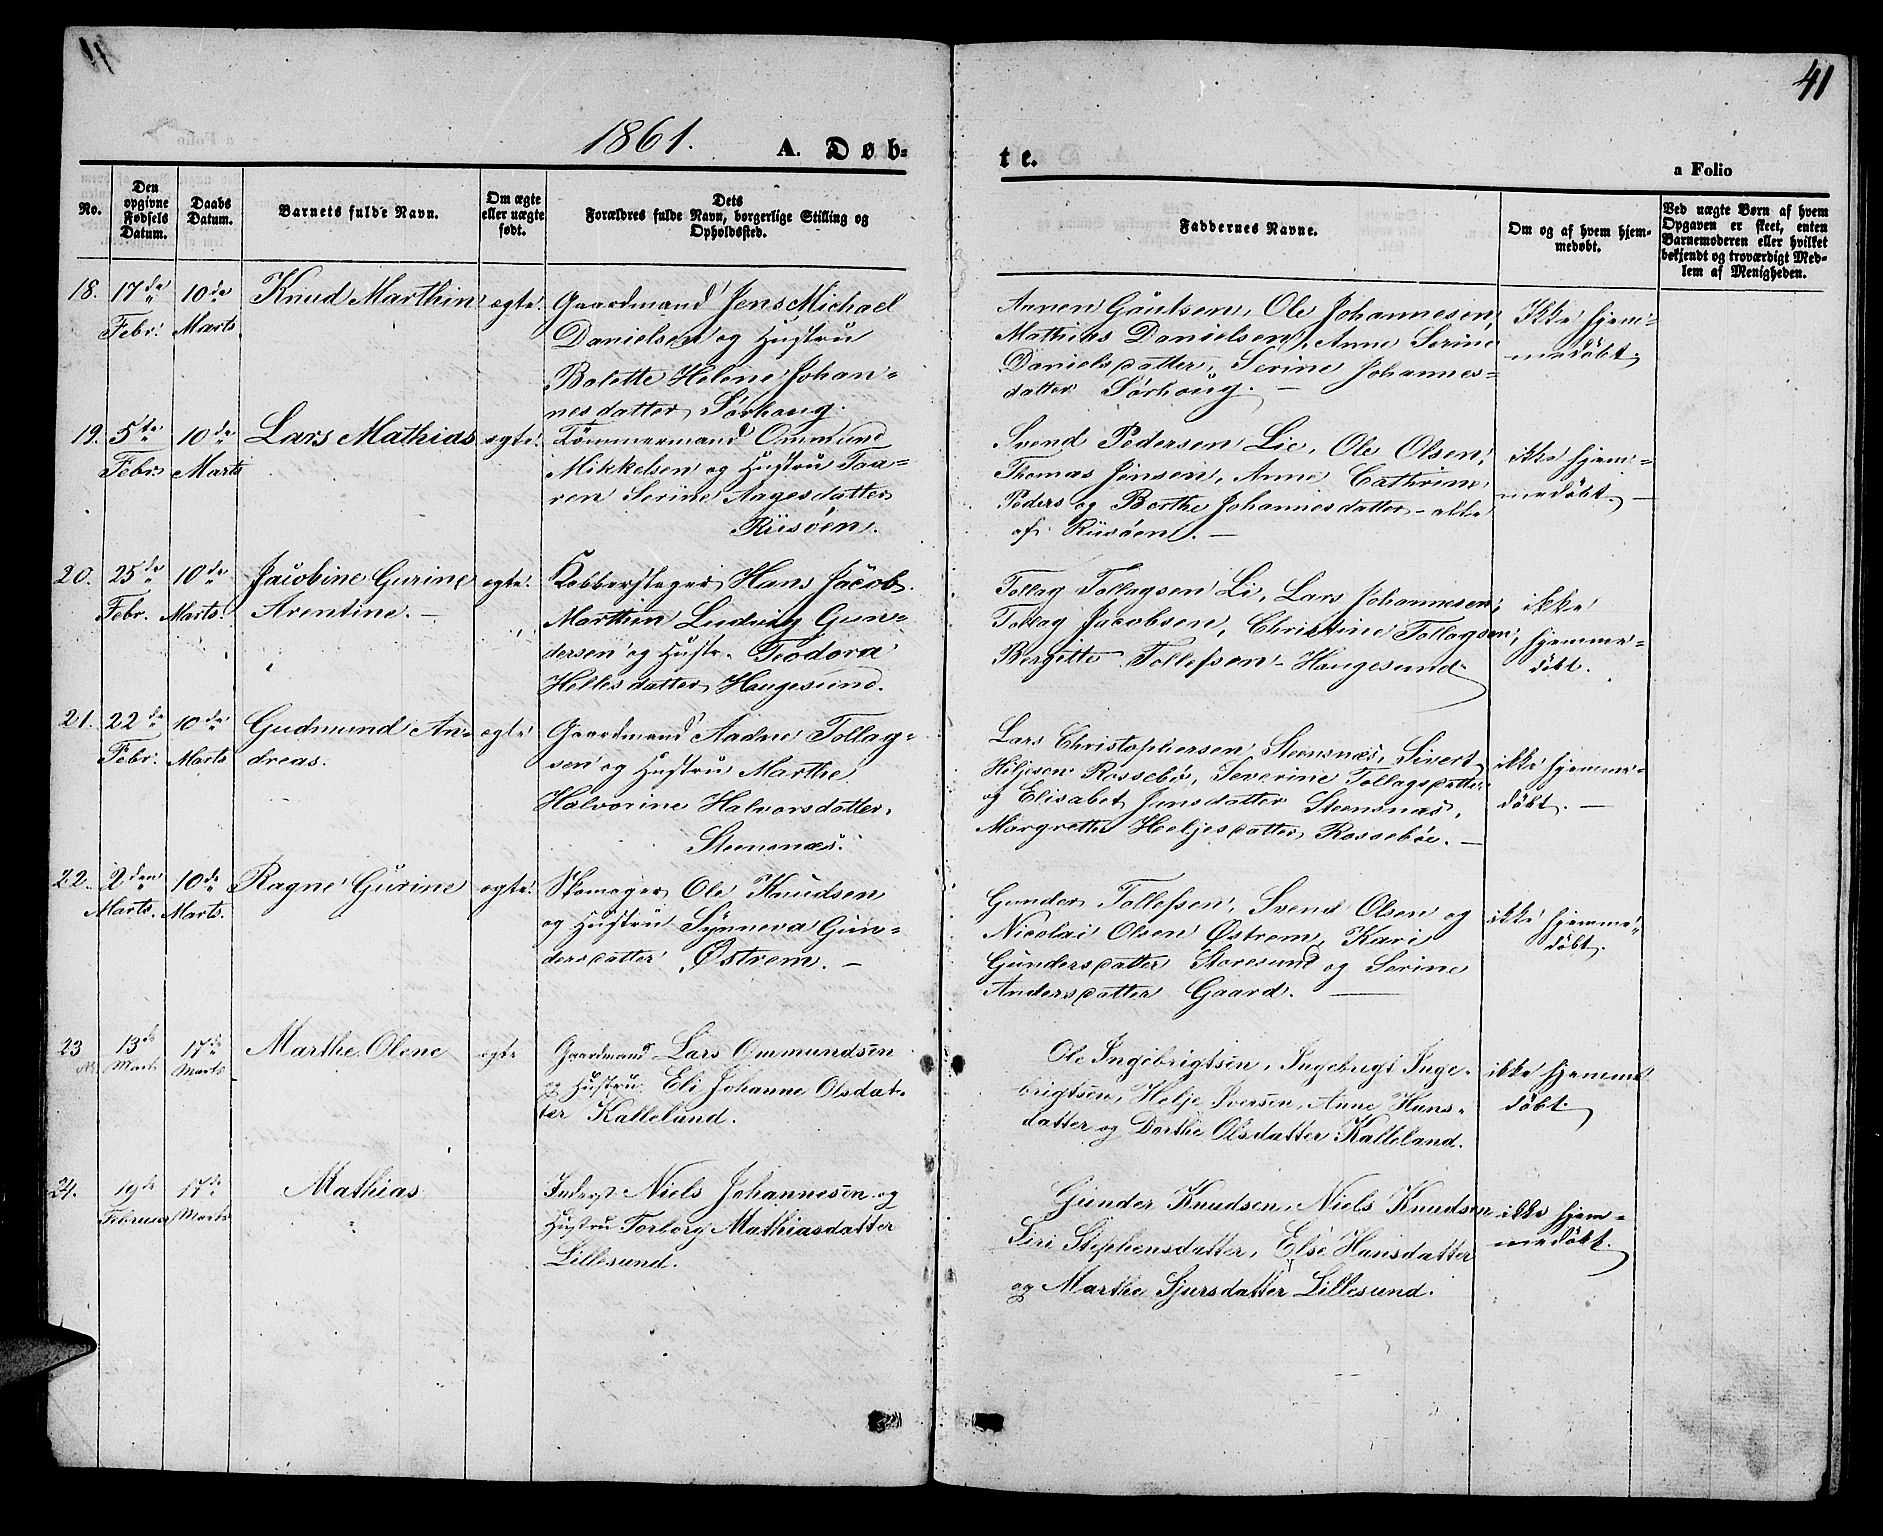 41
1861. A. Døb-
te.
a Folio
No.
Den opgivne Fødsels Datum.
Daabs Datum.
Barnets fulde Navn.
Om ægte eller uægte født.
Dets
Forældres fulde Navn, borgerlige Stilling og
Opholdssted.
Faddernes Navne.
Om og af hvem hjem-
medøbt.
Ved uægte Børn af hvem
Opgaven er skeet, enten
Barnemoderen eller hvilket
bekjendt og troværdigt Med-
lem af Menigheden.
18. 17de 10de Knud Marthin ægte Gaardmand Jens Michael
Febr. Marts Danielsen og Hustru
Bolette Helene Johan-
nesdatter Sørhoug.
Annen Gautsen, Ole Johannesen,
Mathias Danielsen, Anne Serine
Danielsdatter, Serine Johannes-
datter Sørhoug. —
Ikke hjem-
medøbt.
19. 5te 10de Lars Mathias ægte Tømmermand Ommund
Febr. Marts Mikkelsen og Hustru Taa-
ren Serine Aagesdatter
Riisøen.
Svend Pedersen Lie, Ole Olsen,
Thomas Jensen, Anne Cathrine
Peders og Berthe Johannesdatter - alle
af Riisøen. —
ikke hjem-
medøbt. —
20. 25de 10de Jacobine Gurine ægte Kobberslager Hans Jacob
Febr. Marts. Arentine. — Marthin Ludvig Gun-
dersen og Hustr. Teodora
Hellesdatter Haugesund.
Tollag Tollagsen Li, Lars Johannesen,
Tollag Jacobsen, Christine Tollagsen,
Bergitte Tollefsen - Haugesund
ikke
hjemme-
døbt.
21. 22de 10de Gudmund An- ægte Gaardmand Aadne Tollag-
Febr. Marts dreas. sen og Hustru Marthe
Halvorine Halvorsdatter,
Steensnæs.
Lars Christophersen Steensnæs, Sivert
Heljesen Rossebø, Severine Tollagsdatter
og Elisabet Jensdatter Steensnæs,
Margrethe Heljesdatter Rossebøe. —
ikke hjemme-
døbt. —
22. 2den 10de Ragne Gurine ægte Skomager Ole Knudsen
Marts. Marts. og Hustru Synneva Gun-
dersdatter Østrem. —
Gunder Tollefsen, Svend Olsen og
Nicolai Olsen Østrem, Kari
Gundersdatter Storesund og Serine
Andersdatter Gaard. —
ikke hjemme-
døbt.
23 13de 17de Marthe Olene ægte Gaardmand Lars Ommundsen
Marts Marts og Hustru Eli Johanne Olsdat-
ter Kallelund.
Ole Ingebrigtsen, Ingebregt Inge-
brigtsen, Helje Iversen, Anne Hans-
datter og Dorthe Olsdatter Kalleland.
ikke hjemme
døbt.
24. 19de 17de Mathias Inderst Niels Johannesen og
Februar Marts Hustru Torborg Mathiasdatter
Lillesund.
Gunder Knudsen, Niels Knudsen
Siri Stephensdatter, Else Hansdatter
og Marthe Sjursdatter Lillesund.
ikke hjem-
medøbt.